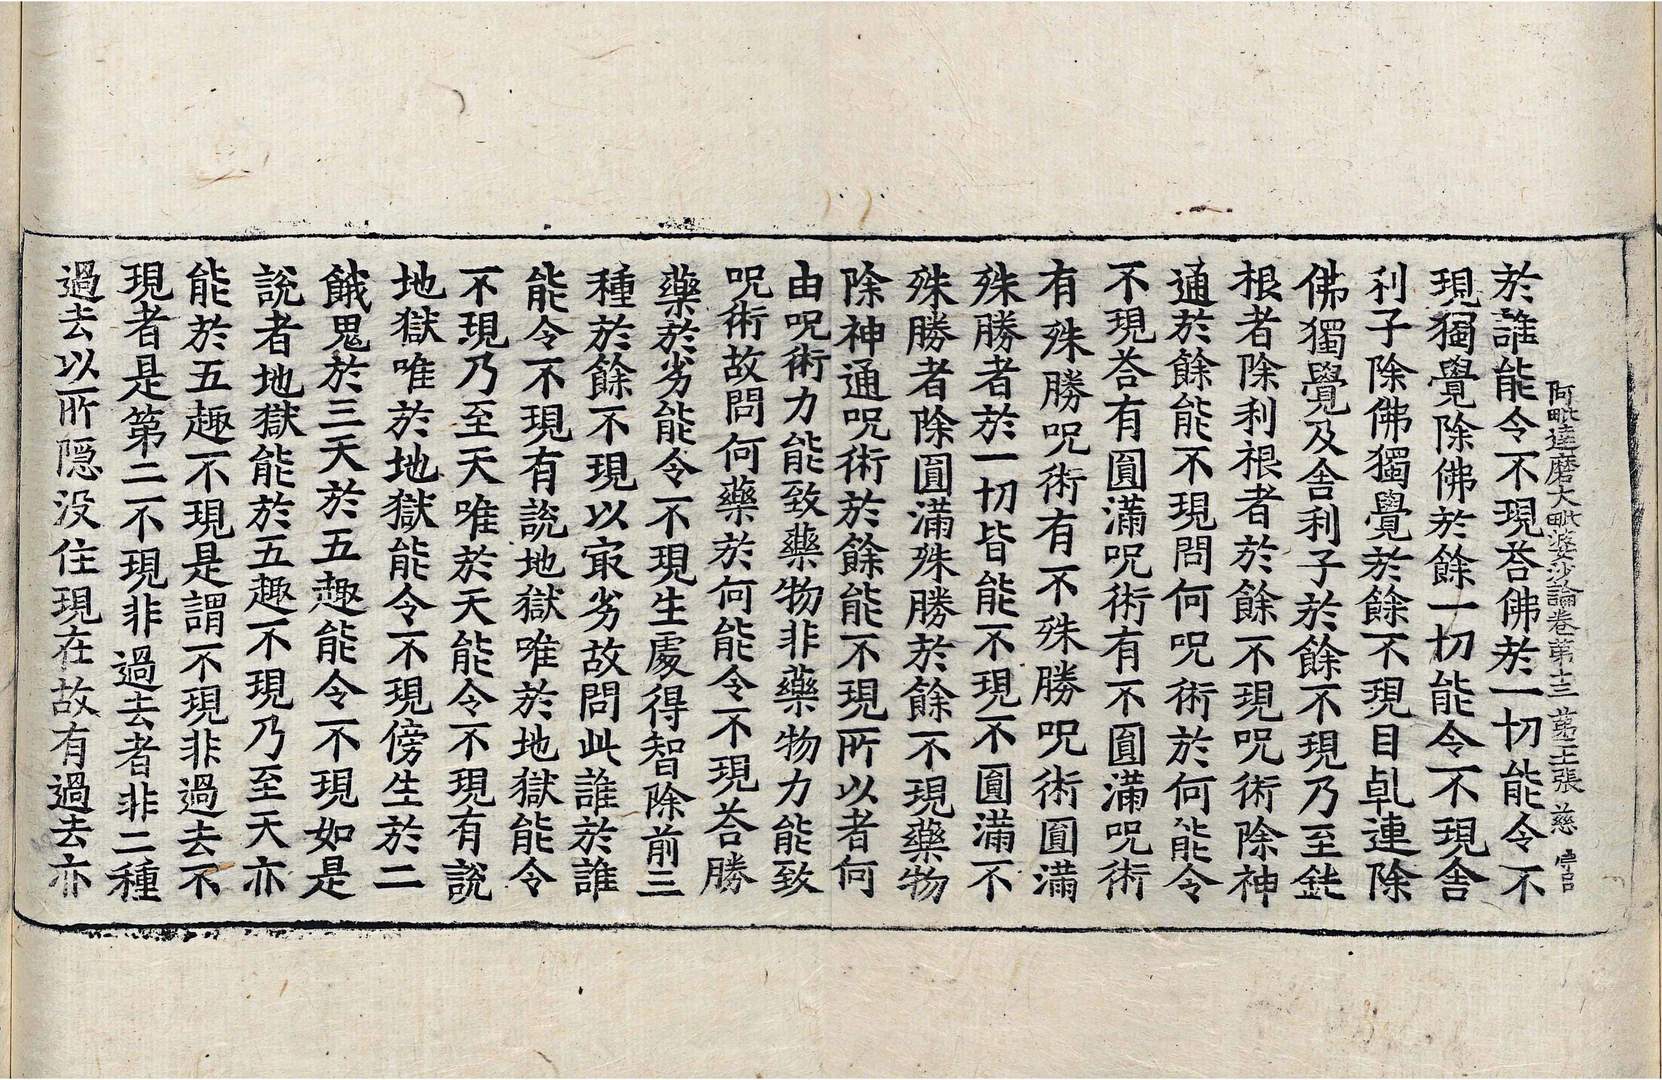 阿毗達磨大毗婆沙論卷第十三 第十三張 慈 字号
於誰能令不現荅佛於一切能令不
現獨覺除佛於餘一切能令不現舎
利子除佛獨覺於餘不現目乹連除
佛獨覺及舎利子於餘不現乃至鈍
根者除利根者於餘不現呪術除神
通於餘能不現問何呪術於何能令
不現荅有圓滿呪術有不圓滿呪術
有殊勝呪術有不殊勝呪術圓滿
殊勝者於一切皆能不現不圓滿不
殊勝者除圓滿殊勝於餘不現藥物
除神通呪術於餘能不現所以者何
由呪術力能致藥物非藥物力能致
呪術故問何藥於何能令不現荅勝
藥於劣能令不現生處得智除前三
種於餘不現以冣劣故問此誰於誰
能令不現有說地獄唯於地獄能令
不現乃至天唯於天能令不現有說
地獄唯於地獄能令不現傍生於二
餓鬼於三天於五趣能令不現如是
說者地獄能於五趣不現乃至天亦
能於五趣不現是謂不現非過去不
現者是第二不現非過去者非二種
過去以所隱没住現在故有過去亦